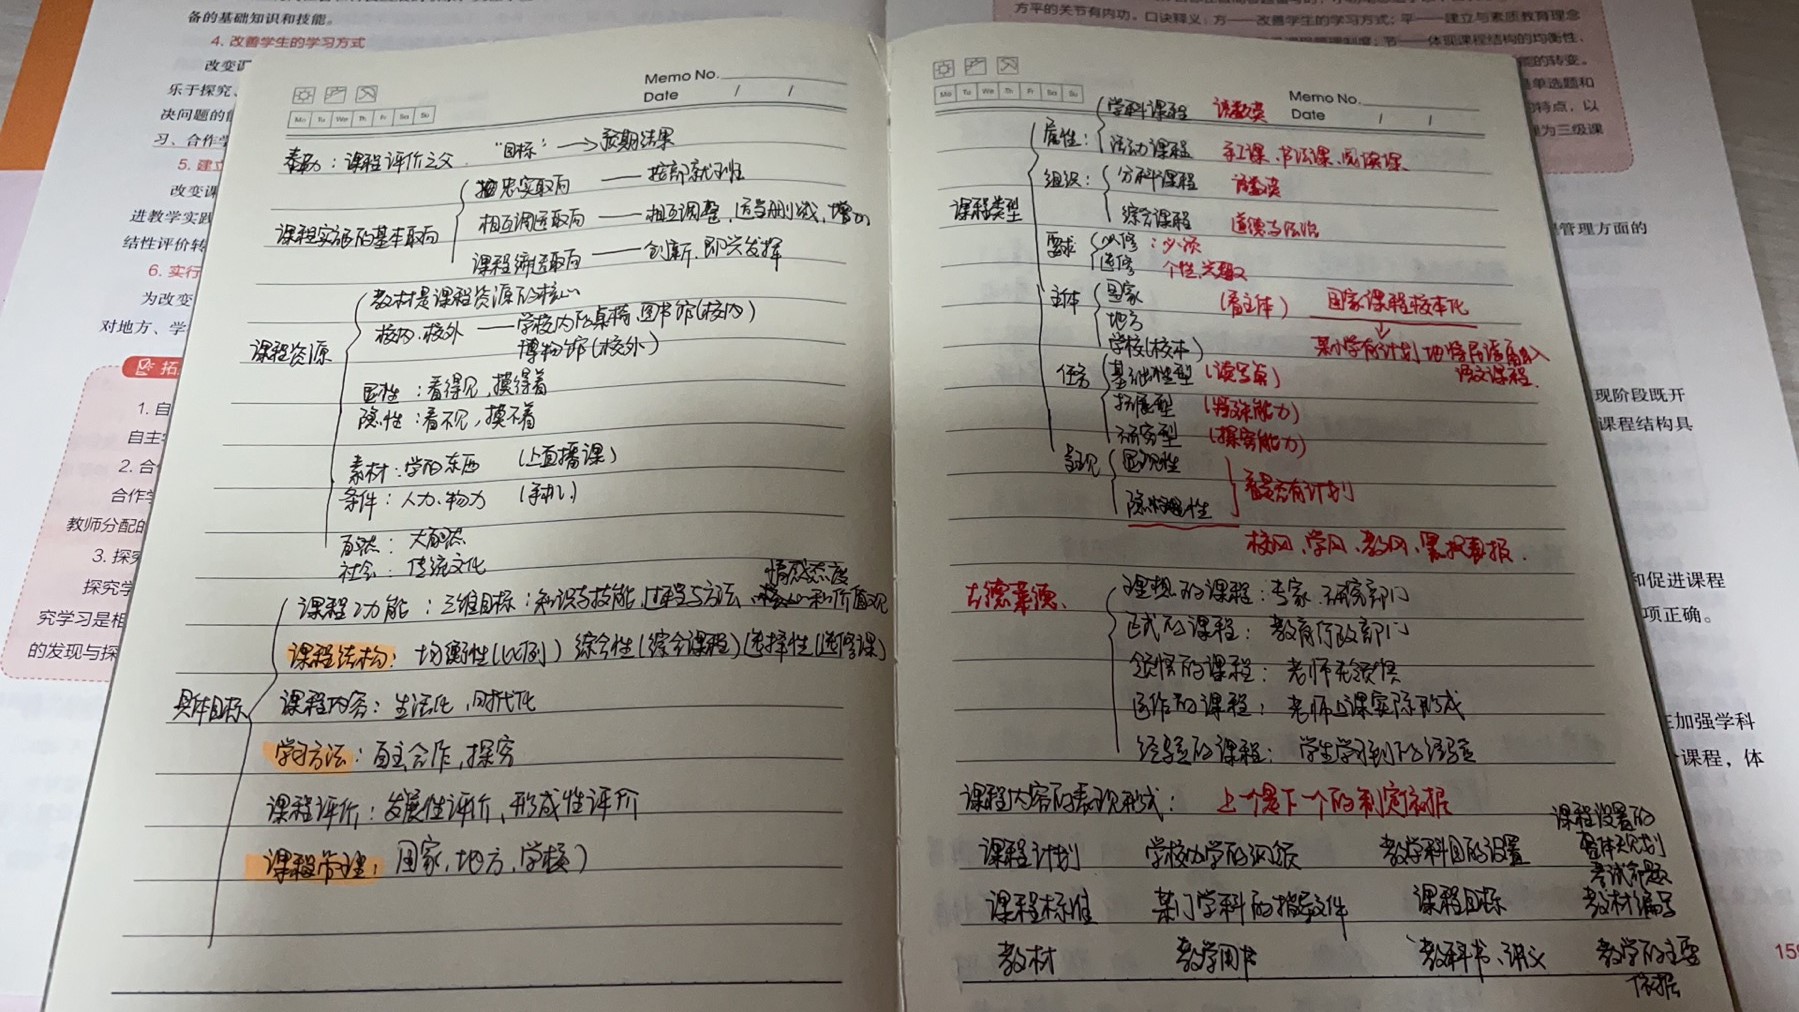 备的基础知识和技能。
4. 改善学生的学习方式
改变课
乐于探究、
决问题的
习、合作学
5. 建立
改变课
进教学实践
结性评价转
6. 实行
为改变
对地方、学
拓
1. 自
自主
2. 合
合作学
教师分配的
3. 探究
探究学
究学习是相
的发现与探
Memo No.
Date / /
Mo Tu We Th Fr Sa Su
泰勒：课程评价之父. "目标" → 预期结果
课程实施的基本取向
忠实取向 —— 按部就班
相互调适取向 —— 相互调整，适当删减，增加
课程缔造取向 —— 创新、即兴发挥
课程资源
教材是课程资源的核心
校内、校外 —— 学校内的桌椅、图书馆（校内）
博物馆（校外）
显性：看得见，摸得着
隐性：看不见，摸不着
素材：学的东西 （上直播课）
条件：人力、物力 （手机）
自然：大自然
社会：传统文化
具体目标
情感态度
课程功能：三维目标：知识与技能，过程与方法、和价值观
课程结构：均衡性（比例）综合性（综合课程）选择性（选修课）
课程内容：生活化，时代化
学习方法：自主合作，探究
课程评价：发展性评价、形成性评价
课程管理：国家、地方、学校）
方平的关节有内功。口诀释义：方——改善学生的学习方式；平——建立与素质教育理念
节——体现课程结构的均衡性、
能的转变。
单选题和
的特点，以
为三级课
Memo No.
Date / /
Mo Tu We Th Fr Sa Su
课程类型
属性：
学科课程 语数英
活动课程 手工课、书法课、阅读课
组织：
分科课程 语数英
综合课程 道德与法治
要求
必修：必须
选修 个性、兴趣
主体
国家 （看主体） 国家课程校本化
地方
学校（校本）
某小学有计划地将民谣融入
语文课程.
任务
基础型（读写算）
拓展型（特殊能力）
研究型（探究能力）
表现
显性
隐性
看是否有计划
校风、学风、教风、黑板报.
古德莱德、
理想的课程：专家、研究部门
正式的课程：教育行政部门
领悟的课程：老师无领悟
运作的课程：老师上课实际形成
经验的课程：学生学习到的经验
课程内容的表现形式：上一个是下一个的制定依据
课程计划 学校办学的纲领 教学科目的设置 课程设置的整体规划
课程标准 某门学科的指导文件 课程目标 考试命题 教材编写
教材 教学用书 教科书、讲义 教学的主要依据
程管理方面的
现阶段既开
课程结构具
和促进课程
项正确。
在加强学科
课程，体